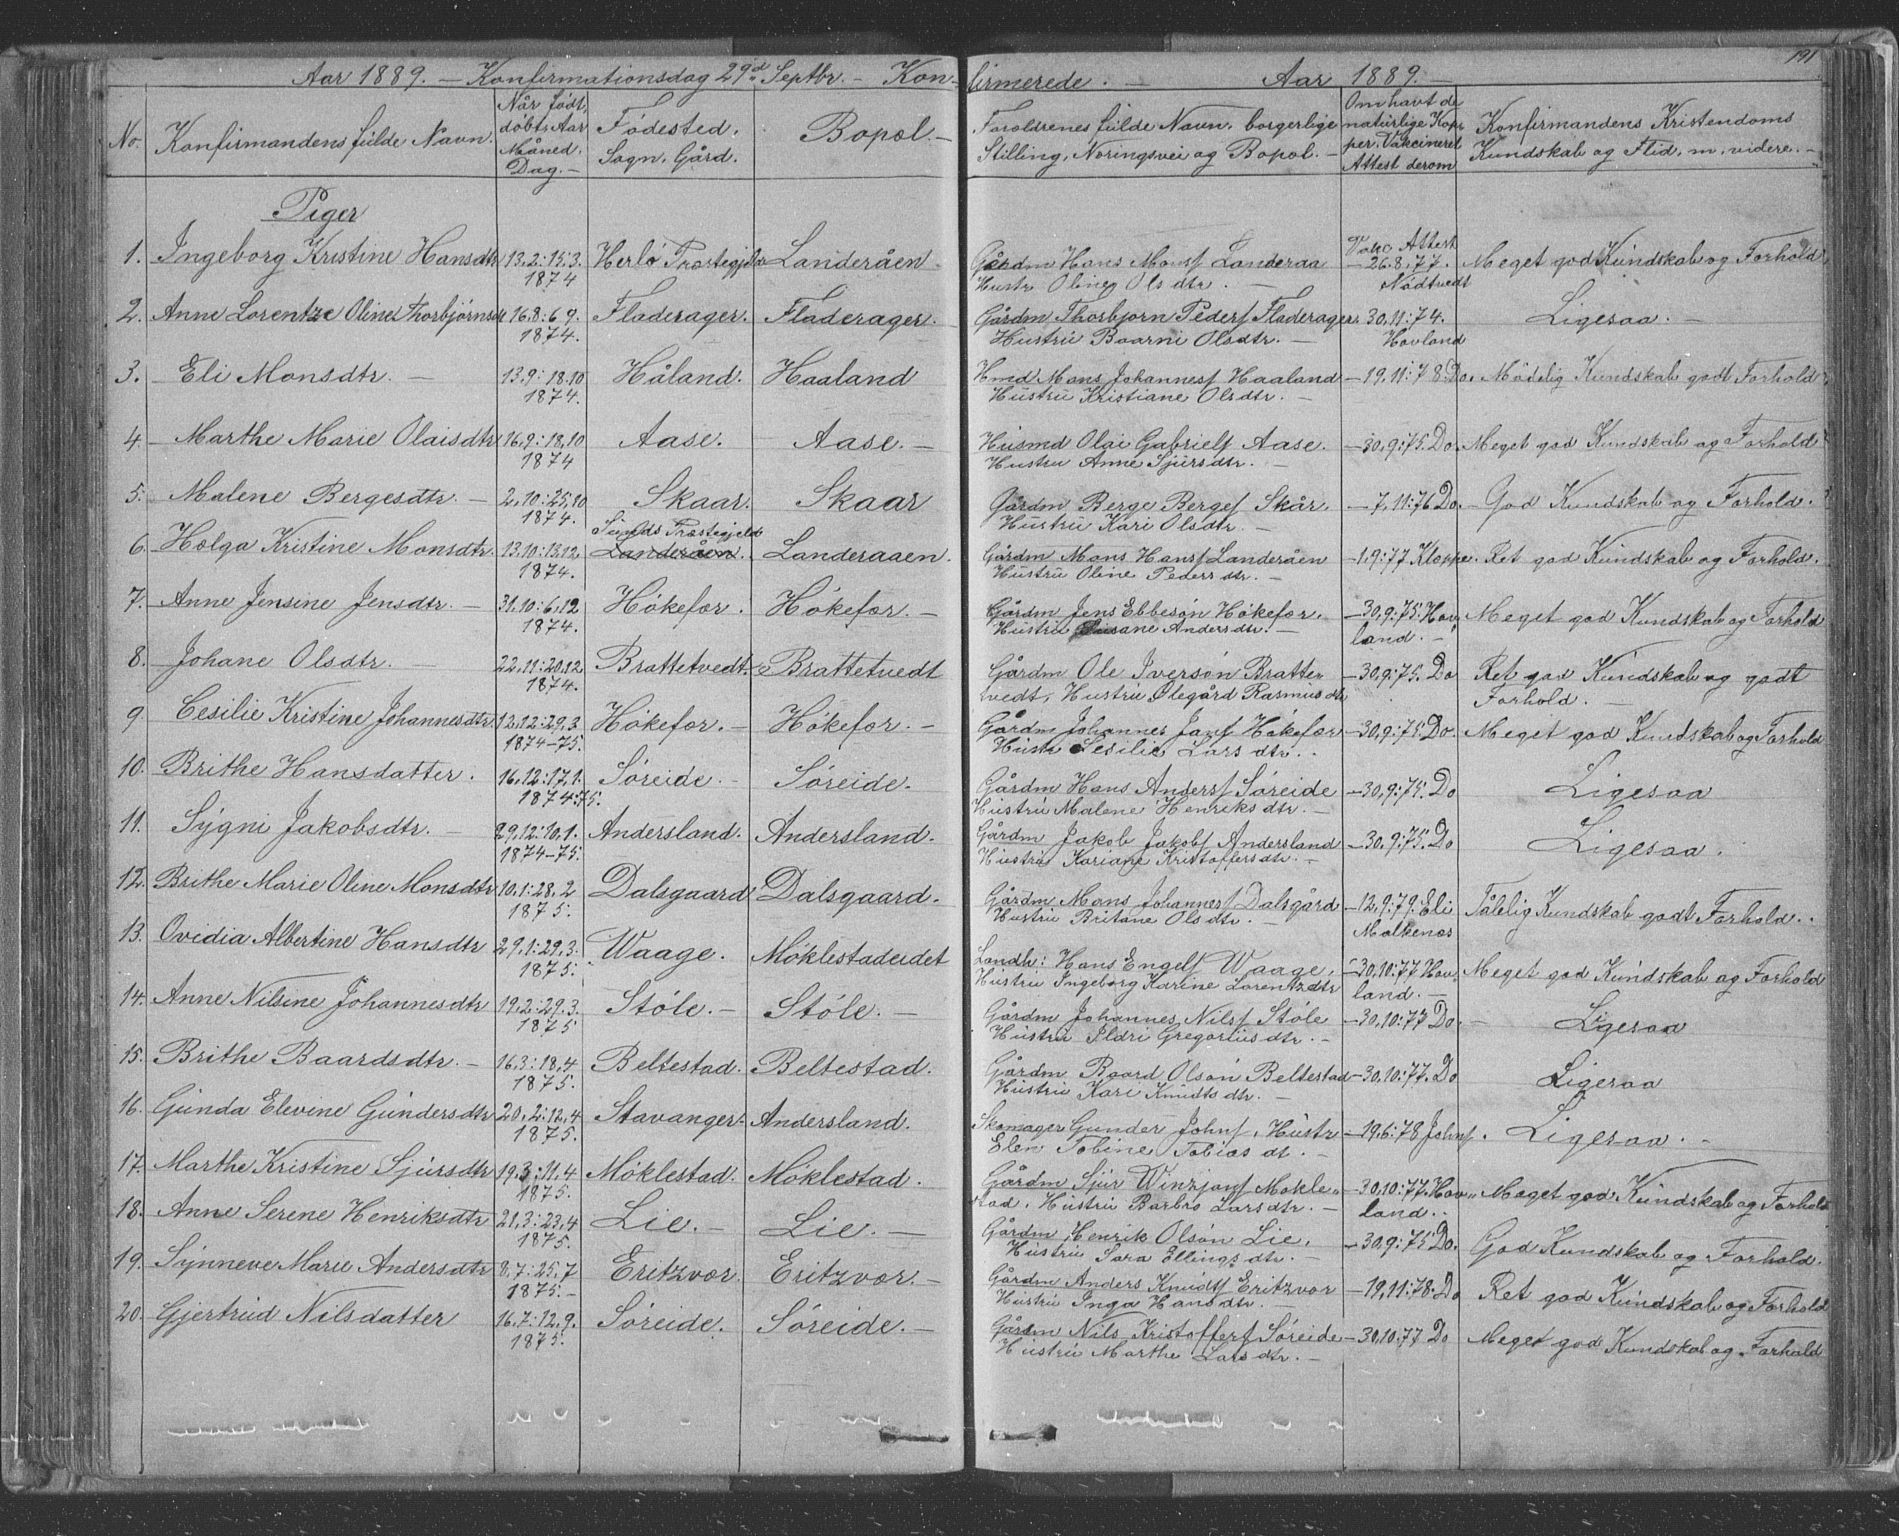 191
Aar 1889. — Konfirmationsdag 29d Septbr. — Konfirmerede. — Aar 1889. —
No. Konfirmandens fulde Navn. Når født, døbt, Aar Måned. Dag. — Fødested. Sogn, Gård. Bopæl. — Foræld̈renes fulde Navn, borgerlige Stilling, Næringsvei og Bopæl. — Om havt de naturlige Kopper, Vakcineret Attest derom Konfirmandens Kristendoms Kundskab og Flid, m. videre. —
Piger
1. Ingeborg Kristine Hansdtr 13.2:15.3. Herlø Præstegjeld Landeråen. Gårdm Hans Monsf Landeraa Vacc. Attest —26.8.77. Meget god Kundskab og Forhold
1874 Hustr Oline Olsdtr. — Nødtvedt
2. Anne Lorentze Oline Thorbjørnsdtr 16.8:6.9. Fladerager. Fladerager. Gårdm Thorbjørn Pedersf Fladerager. 30.11:74. Ligesaa. —
1874. Hustru Baarni Olsdtr. — Hovland
3. Eli Monsdtr. — 13.9:18.10 Håland. Haaland Hmd Mons Johannesf Haaland —19.11:78 Do. Mådelig Kundskab godt Forhold
1874. Hustru Kristiane Olsdtr. —
4. Marthe Marie Olaisdtr 16.9:18.10 Aase. Aase. — Husmd Olai Gabrielsf Aase. —30.9:75. Do. Meget god Kundskab og Forhold
1874 Hustru Anne Sjursdtr. —
5. Malene Bergesdtr. — 2.10:25.10 Skaar. Skaar Gårdm Berge Bergesf Skår. —7.11:76 Do. God Kundskab og Forhold.
1874. Hustru Kari Olsdtr. —
Sunds Præstegjeld
6. Helga Kristine Monsdtr 13.10:13.12. Landeråen. Landeraaen. Gårdm Mons Hansf Landeråen —1.9:77 Kleppe. Ret god Kundskab og Forhold.
1874. Hustru Oline Pedersdtr. —
7. Anne Jensine Jensdtr. — 31.10:6.12 Høkefær. Høkefær. — Gårdm Jens Ebbesøn Høkefær. —30.9:75. Hov- Meget god Kundskab og Forhold
1874. Hustru Andersdtr. — land. —
8. Johane Olsdtr. — 22.11:20.12 Brattetvedt. Brattetvedt Gårdm Ole Iversøn Bratte- —30.9:75. Do Ret god Kundskab og godt
1874. tvedt, Hustru Olegård Rasmusdtr Forhold. —
9 Cesilie Kristine Johannesdtr 12.12:29.3 Høkefær. — Høkefær. — Gårdm Johannes Jansf Høkefær —30.9:75 Do. Meget god Kundskab og Forhold
1874-75. Hustr Sesilie Larsdtr. .
10. Brithe Hansdatter. 16.12:17.1. Søreide. — Søreide. Gårdm Hans Andersf Søreide —30.9:75. Do Ligesaa
1874:75. Hustru Malene Henriksdtr. —
11. Sygni Jakobsdtr. — 29.12:10.1. Andersland. Andersland. Gårdm Jakob Jakobsf Andersland —30.9:75. Do Ligesaa.
1874-75. Hustru Kariane Kristoffersdtr. —
12. Brithe Marie Oline Monsdtr 10.1:28.2 Dalsgaard Dalsgaard. Gårdm Mons Johannesf Dalsgård —12.9:79. Eli Tålelig Kundskab godt Forhold. .
1875. Hustru Britane Olsdtr. — Malkenes
13. Ovidia Albertine Hansdtr 29.1:29.3. Waage. Møklestadeidet Landh: Hans Engelsf Waage, —30.10:77 Hov- Meget god Kundskab og Forhold
1875. Hustru Ingeborg Karine Lorentzdtr land. —
14. Anne Nilsine Johannesdtr 19.2:29.3. Støle. — Støle. — Gårdm Johannes Nilsf Støle —30.10:77 Do. — Ligesaa
1875 Hustru Ildri Gregoriusdtr. —
15. Brithe Baardsdtr. — 16.3:18.4 Beltestad. Beltestad. Gårdm Baard Olsøn Beltestad —30.10:77. Do Ligesaa
1875. Hustru Kari Knudtsdtr. —
16. Gunda Elevine Gundersdtr 20.2:12.4 Stavanger. Andersland. Skomager Gunder Johnsf, Hustr —19.6:78 Johnsf. Ligesaa. —
1875. Elen Tobine Tobiasdt. —
17. Marthe Kristine Sjursdtr 19.3:11.4 Møklestad. Møklestad. Gårdm Sjur Winzjansf Møkle- —30.10:77. Hov- Meget god Kundskab og Forhold
1875. stad, Hustru Barbro Larsdtr. — land. .
18. Anne Serene Henriksdtr 21.3:23.4 Lie. — Lie. — Gårdm Henrik Olsøn Lie, —30.9:75 Do. God Kundskab og Forhold.
1875. Hustru Sara Ellingsdtr. —
19. Synneve Marie Andersdtr 8.7:25.7 Eritzvær. Eritzvær. — Gårdm Anders Knudtsf Eritzvær —19.11:78. Do Ret god Kundskab og Forhold
1875. — Hustru Inga Hansdtr. —
20. Gjertrud Nilsdatter 16.7:12.9. Søreide. Søreide. — Gårdm Nils Kristoffersf Søreide —30.10:77 Do Meget god Kundskab og Forhold
1875. Hustru Marthe Larsdtr. —